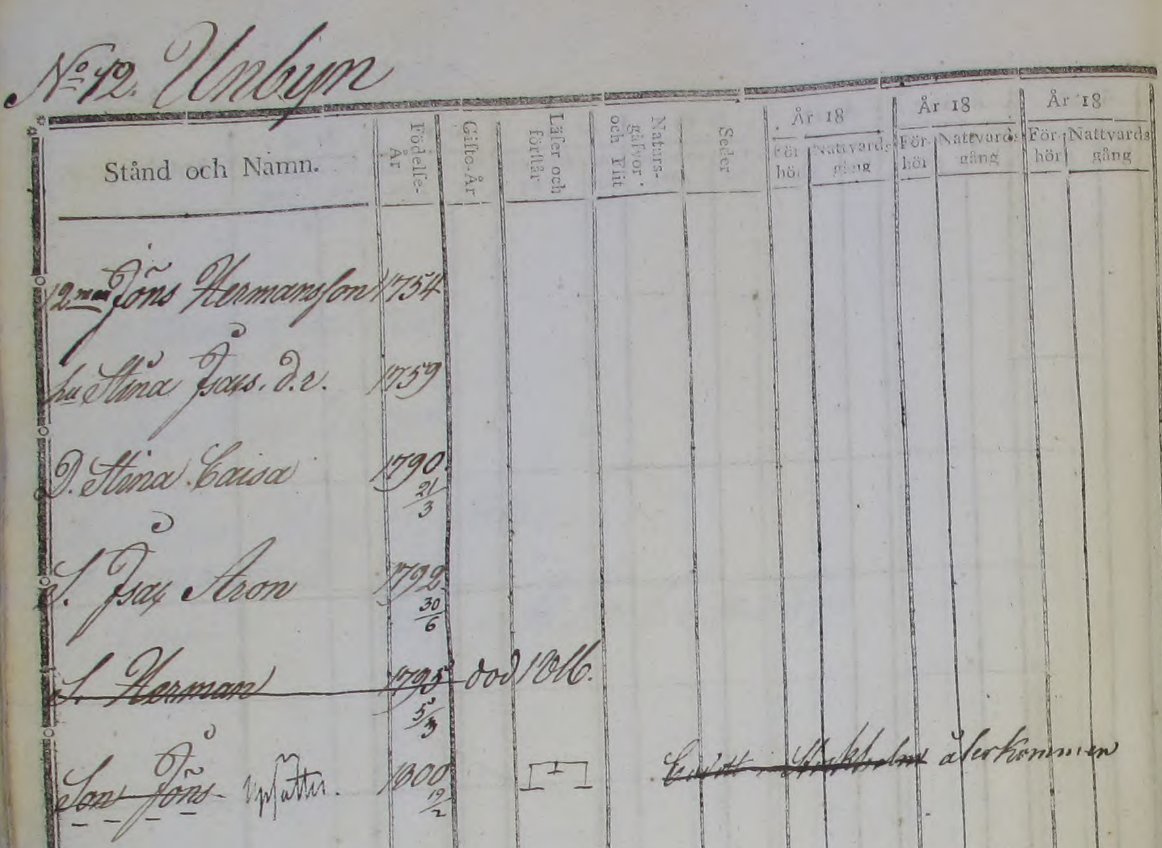 No 12. Unbyn
Stånd och Namn.
Födelse-År
Gifto-År
Läser och förstår
Naturs-gåfvor och Flit
Seder
År 18
För-hör
Nattvards gång
År 18
För-hör
Nattvards gång
År 18
För-hör
Nattvards gång
12 man Jöns Hermansson 1754
hu Stina Isacs. d.r. 1759
D. Stina Caisa 1790 21/3
S. Isac Aron 1792 30/6
S. Herman 1795 5/3 död 1816.
Son Jöns Upsätter. 1800 19/2 Stockholm återkommen